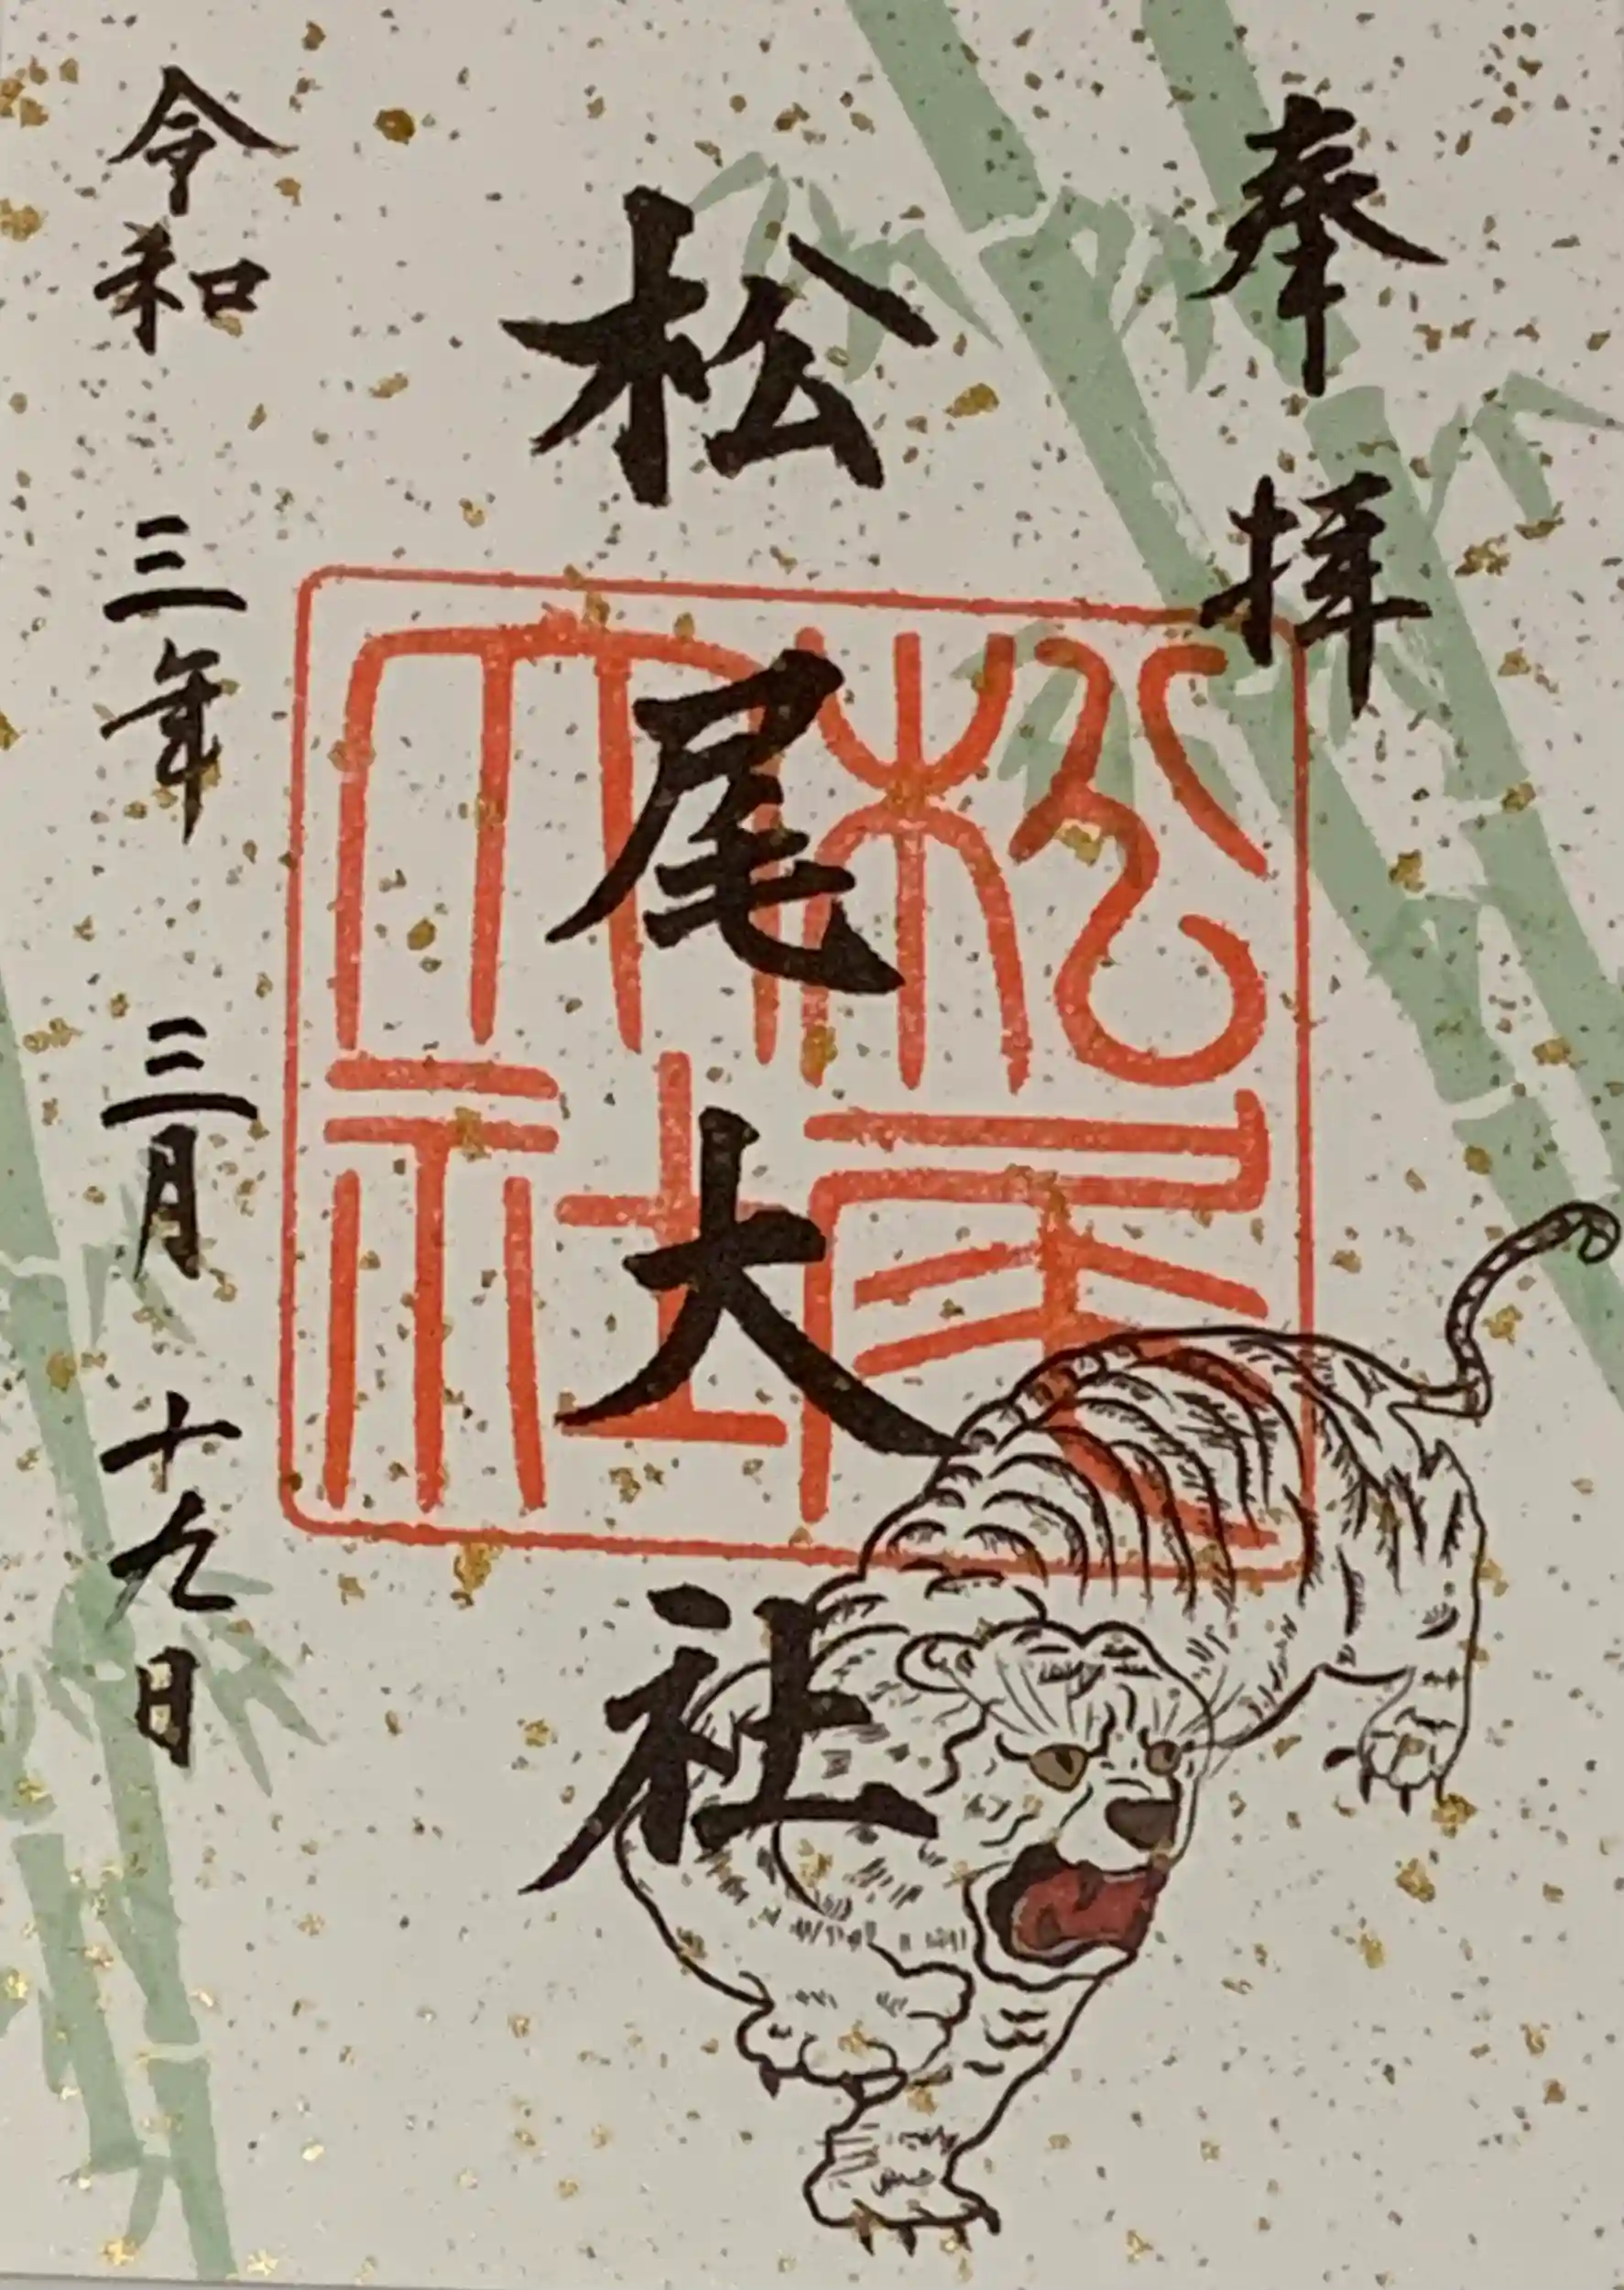 奉拝
松尾大社
松尾大社
令和三年三月十九日